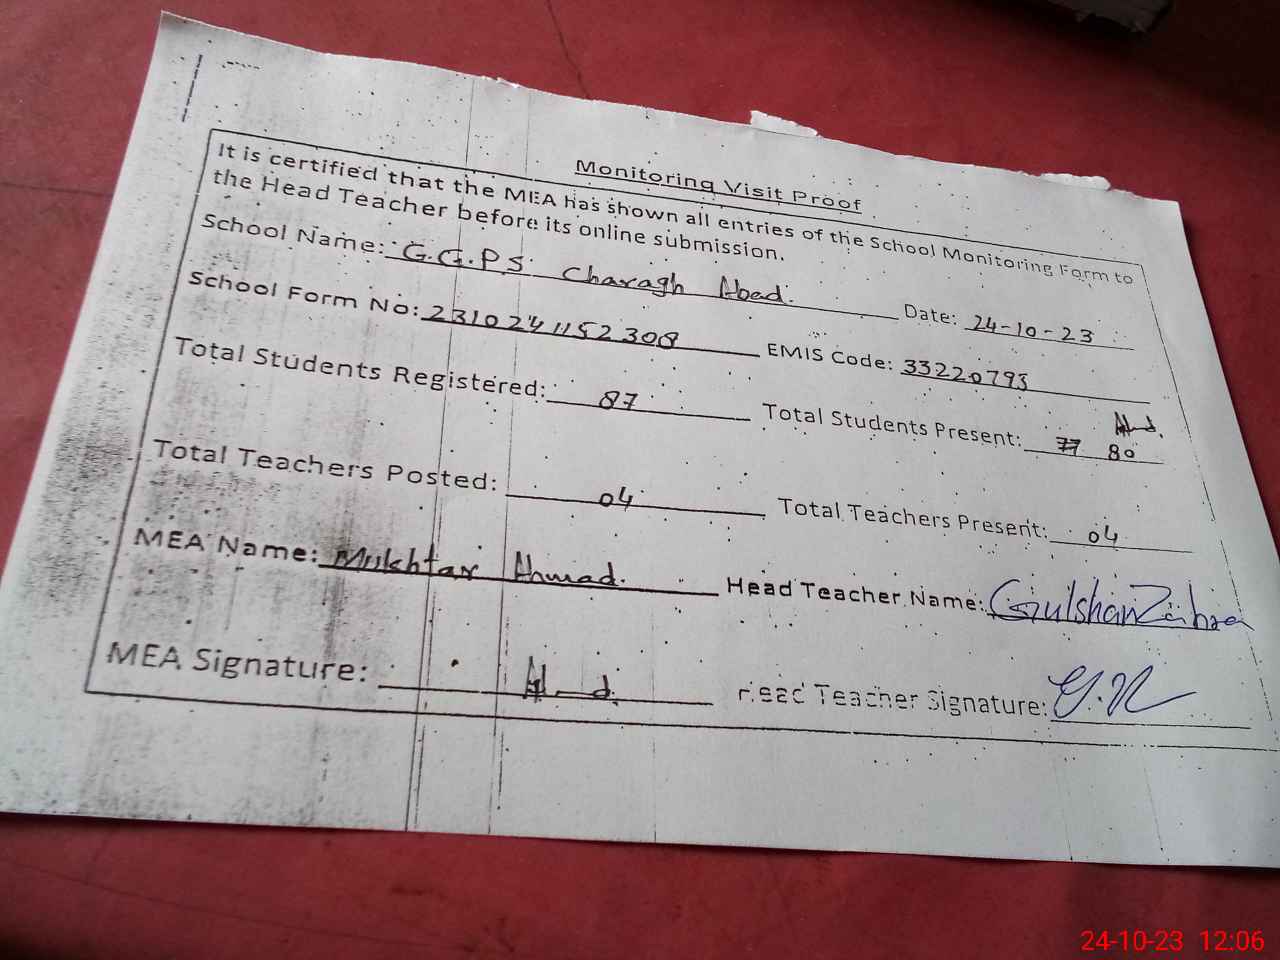 Monitoring Visit Proof
It is certified that the MEA has shown all entries of the School Monitoring Form to
the Head Teacher before its online submission.
School Name: G.G.P.S Charagh Abad. Date: 24-10-23
School Form No: 2310241152308 EMIS Code: 33220793
Total Students Registered: 87 Total Students Present: 77 80
Total Teachers Posted: 04 Total Teachers Present: 04
MEA Name: Mukhtar Ahmad. Head Teacher Name: Gulshan Zahra
MEA Signature: Head Teacher Signature:
24-10-23 12:06